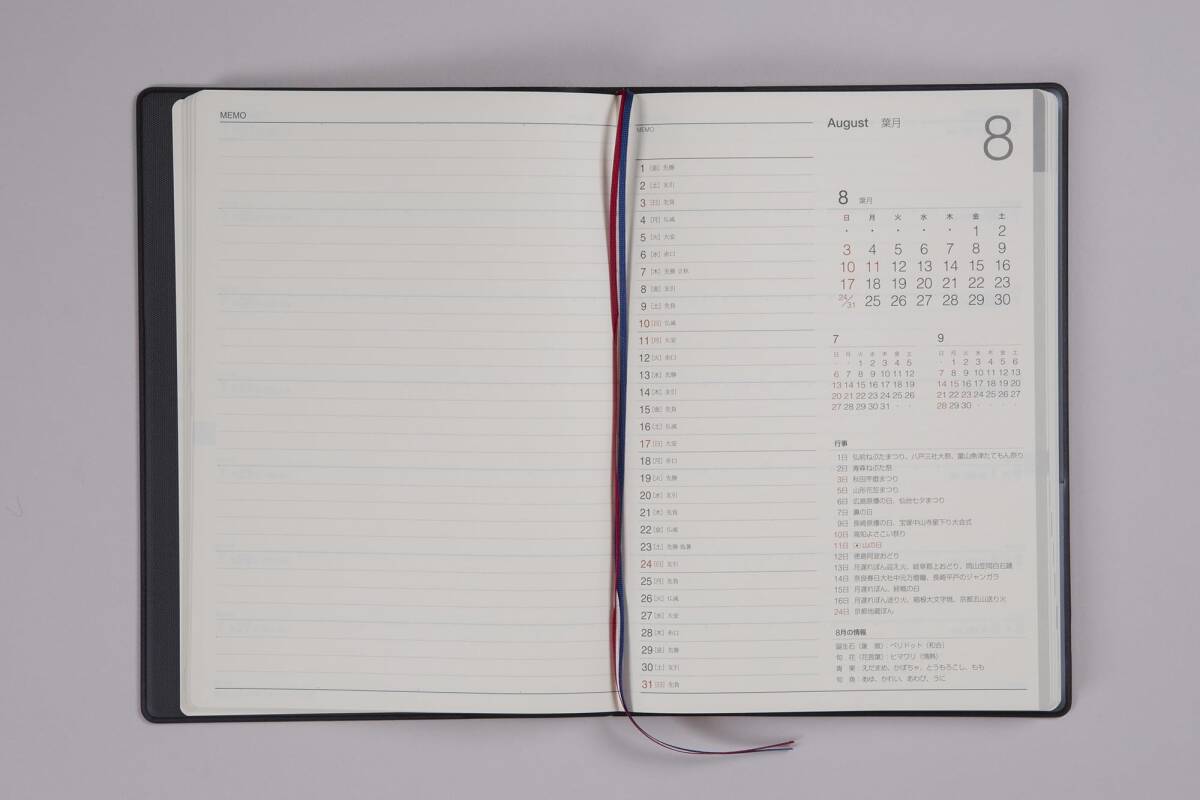 MEMO
MEMO
1 [金] 先勝
2 [土] 友引
3 [日] 先負
4 [月] 仏滅
5 [火] 大安
6 [水] 赤口
7 [木] 先勝 立秋
8 [金] 友引
9 [土] 先負
10 [日] 仏滅
11 [月] 大安
12 [火] 赤口
13 [水] 先勝
14 [木] 友引
15 [金] 先負
16 [土] 仏滅
17 [日] 大安
18 [月] 赤口
19 [火] 先勝
20 [水] 友引
21 [木] 先負
22 [金] 仏滅
23 [土] 先勝 処暑
24 [日] 友引
25 [月] 先負
26 [火] 仏滅
27 [水] 大安
28 [木] 赤口
29 [金] 先勝
30 [土] 友引
31 [日] 先負
August 葉月 8
8 葉月
日 月 火 水 木 金 土
・ ・ ・ ・ ・ 1 2
3 4 5 6 7 8 9
10 11 12 13 14 15 16
17 18 19 20 21 22 23
24/31 25 26 27 28 29 30
7
日 月 火 水 木 金 土
・ ・ 1 2 3 4 5
6 7 8 9 10 11 12
13 14 15 16 17 18 19
20 21 22 23 24 25 26
27 28 29 30 31 ・ ・
9
日 月 火 水 木 金 土
・ 1 2 3 4 5 6
7 8 9 10 11 12 13
14 15 16 17 18 19 20
21 22 23 24 25 26 27
28 29 30 ・ ・ ・ ・
行事
1日 弘前ねぷたまつり、八戸三社大祭、富山魚津たてもん祭り
2日 青森ねぶた祭
3日 秋田竿燈まつり
5日 山形花笠まつり
6日 広島原爆の日、仙台七夕まつり
7日 鼻の日
9日 長崎原爆の日、宝塚中山寺星下り大会式
10日 高知よさこい祭り
11日 山の日
12日 徳島阿波おどり
13日 月遅れぼん迎え火、岐阜郡上おどり、岡山笠岡白石踊
14日 奈良春日大社中元万燈籠、長崎平戸のジャンガラ
15日 月遅れぼん、終戦の日
16日 月遅れぼん送り火、箱根大文字焼、京都五山送り火
24日 京都地蔵ぼん
8月の情報
誕生石(意 味):ペリドット(和合)
旬 花(花言葉):ヒマワリ(情熱)
青 果:えだまめ、かぼちゃ、とうもろこし、もも
旬 魚:あゆ、かれい、あわび、うに